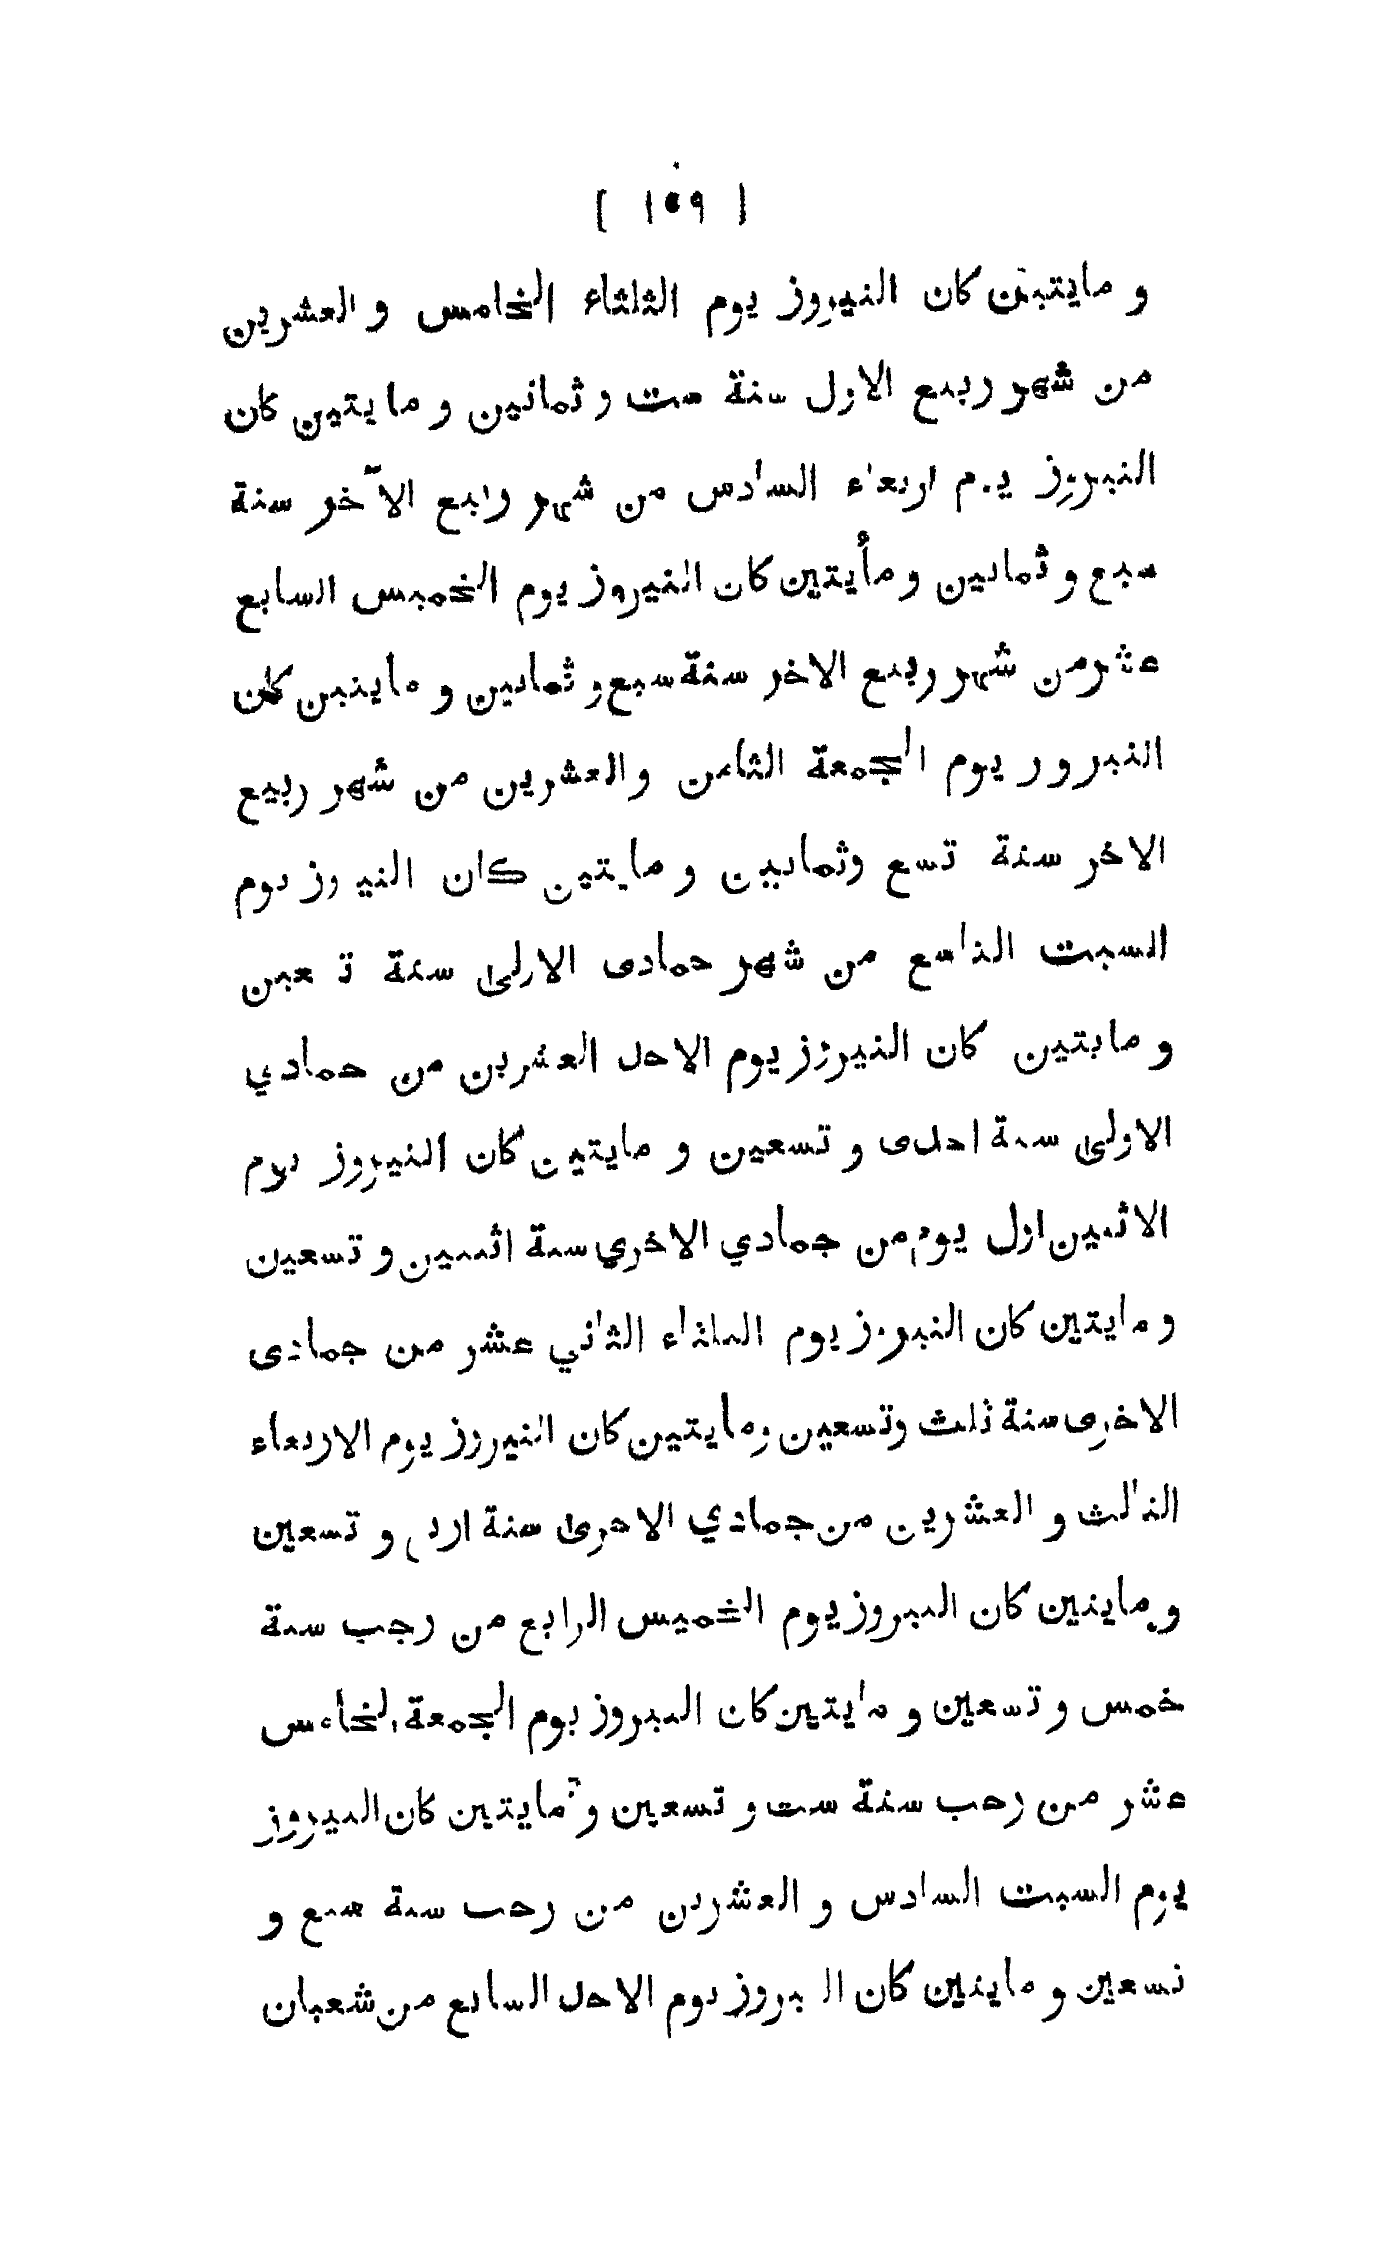 [ ١٥٩ ]
و مايتين كان النيروز يوم الثلثاء الخامس و العشرين
من شهر ربيع الاول سنة ست و ثمانين و مايتين كان
النيروز يوم اربعاء السادس من شهر رابيع الآخر سنة
سبع و ثمانين و مأيتين كان النيروز يوم الخميس السابع
عشر من شهر ربيع الاخر سنة سبع و ثمانين و مايتين كان
النيرور يوم الجمعة الثامن والعشرين من شهر ربيع
الاخر سنة تسع وثمانين و مايتين كان النيروز يوم
السبت التاسع من شهر جمادى الاولى سنة تسعين
و مايتين كان النيروز يوم الاحد العشرين من جمادي
الاولى سنة احدى و تسعين و مايتين كان النيروز يوم
الاثنين اول يوم من جمادي الاخري سنة اثنين و تسعين
و مايتين كان النيروز يوم الثلثاء الثاني عشر من جمادى
الاخرى سنة ثلث وتسعين ومايتين كان النيروز يوم الاربعاء
الثالث و العشرين من جمادي الاخرى سنة اربع و تسعين
و مايتين كان النيروز يوم الخميس الرابع من رجب سنة
خمس و تسعين و مايتين كان النيروز يوم الجمعة الخامس
عشر من رجب سنة ست و تسعين و مايتين كان النيروز
يوم السبت السادس و العشرين من رجب سنة سبع و
تسعين و مايتين كان النيروز يوم الاحد السابع من شعبان